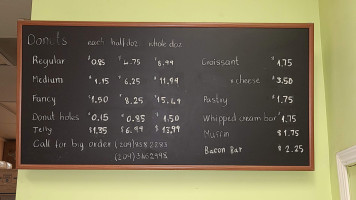 Donuts each half doz whole doz
Regular $0.85 $4.75 $8.99
Medium $1.15 $6.25 $11.99
Fancy $1.50 $8.25 $15.49
Donut holes $0.15 $0.85 $1.50
Jelly $1.35 $6.99 $13.99
Call for big order (204)
(204)
Croissant $1.75
x cheese $3.50
Pastry $1.75
Whipped cream bar $1.75
Muffin $1.75
Bacon Bar $2.25